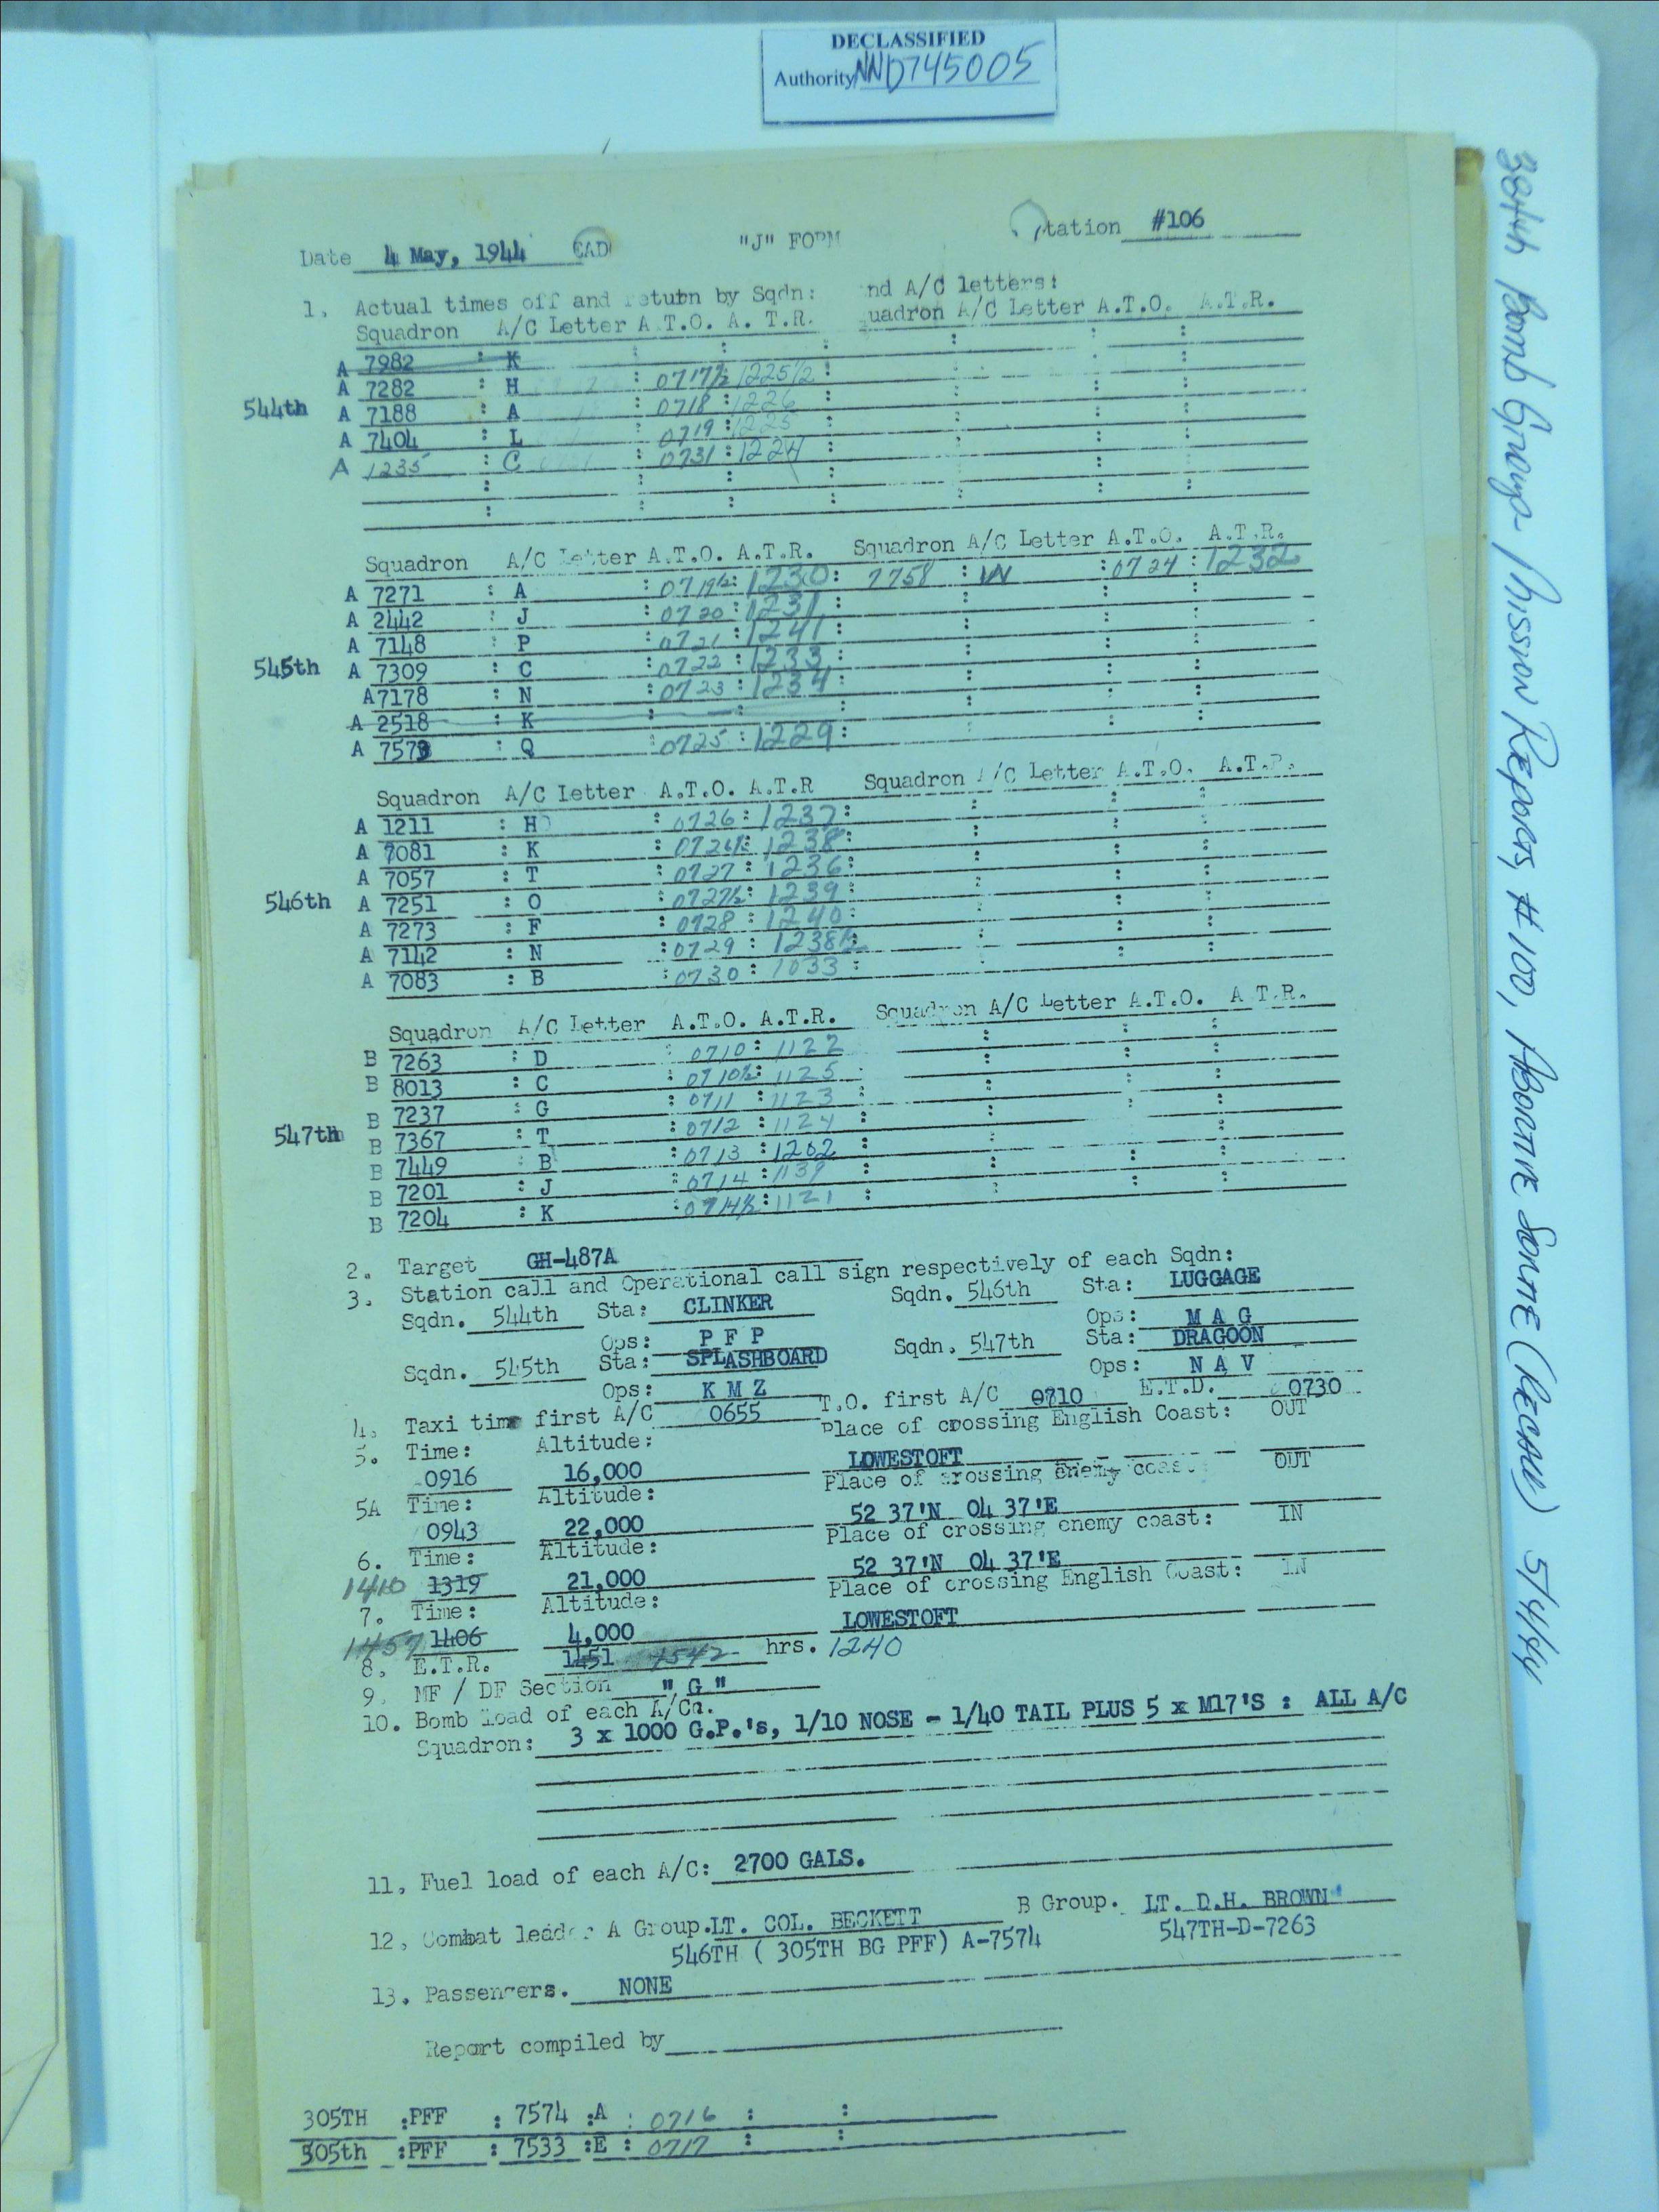 DECLASSIFIED
Authority NND745005
384th Bomb Group - Mission Reports, #100, Abortive Sortie (Recall) 5/4/44
Date 4 May, 1944 "J" FORM tation #106
1. Actual times off and return by Sqdn: nd A/C letters:
Squadron A/C Letter A.T.O. A.T.R. uadron A/C Letter A.T.O. A.T.R.
A 7982 : K
A 7282 : H : 0717½ 1225½ :
544th A 7188 : A : 0718 : 1226 :
A 7404 : L : 0719 : 1225 :
A 1235 : C : 0731 : 1224 :
Squadron A/C Letter A.T.O. A.T.R. Squadron A/C Letter A.T.O. A.T.R.
A 7271 : A : 0719½ : 1230 : 7758 : W : 0724 : 1232
A 2442 : J : 0720 : 1231 :
A 7148 : P : 0721 : 1241 :
545th A 7309 : C : 0722 : 1233 :
A 7178 : N : 0723 : 1234 :
A 2518 : K
A 7573 : Q : 0725 : 1229 :
Squadron A/C Letter A.T.O. A.T.R Squadron A/C Letter A.T.O. A.T.R.
A 1211 : H : 0726 : 1237 :
A 7081 : K : 0726½ : 1238 :
A 7057 : T : 0727 : 1236 :
546th A 7251 : O : 0727½ : 1239 :
A 7273 : F : 0728 : 1240 :
A 7142 : N : 0729 : 1238½ :
A 7083 : B : 0730 : 1033 :
Squadron A/C Letter A.T.O. A.T.R. Squadron A/C Letter A.T.O. A.T.R.
B 7263 : D : 0710 : 1122
B 8013 : C : 0710½ : 1125
B 7237 : G : 0711 : 1123 :
547th B 7367 : T : 0712 : 1124 :
B 7449 : B : 0713 : 1202 :
B 7201 : J : 0714 : 1139 :
B 7204 : K : 0714½ : 1121 :
2. Target GH-487A
3. Station call and Operational call sign respectively of each Sqdn:
Sqdn. 544th Sta: CLINKER Sqdn. 546th Sta: LUGGAGE
Ops: P F P Ops: M A G
Sqdn. 545th Sta: SPLASHBOARD Sqdn. 547th Sta: DRAGOON
Ops: K M Z Ops: N A V
4. Taxi time first A/C 0655 T.O. first A/C 0710 E.T.D. 0730
5. Time: Altitude: Place of crossing English Coast: OUT
0916 16,000 LOWESTOFT
5A Time: Altitude: Place of crossing enemy coast: OUT
0943 22,000 52 37'N 04 37'E
6. Time: Altitude: Place of crossing enemy coast: IN
1410 1319 21,000 52 37'N 04 37'E
7. Time: Altitude: Place of crossing English Coast: IN
1457 1406 4,000 LOWESTOFT
8. E.T.R. 1451 1542 hrs. 1240
9. MF / DF Section "G"
10. Bomb load of each A/C
Squadron: 3 x 1000 G.P.'s, 1/10 NOSE - 1/40 TAIL PLUS 5 x M17'S : ALL A/C
11. Fuel load of each A/C: 2700 GALS.
12. Combat leader A Group. LT. COL. BECKETT B Group. LT. D.H. BROWN
546TH ( 305TH BG PFF) A-7574 547TH-D-7263
13. Passengers. NONE
Report compiled by
305TH :PFF : 7574 :A : 0716 : :
305th :PFF : 7533 :E : 0717 : :